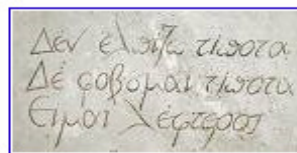 Δέν ἐλπίζω τίποτα
Δέ φοβᾶμαι τίποτα
Εἶμαι λέφτερος